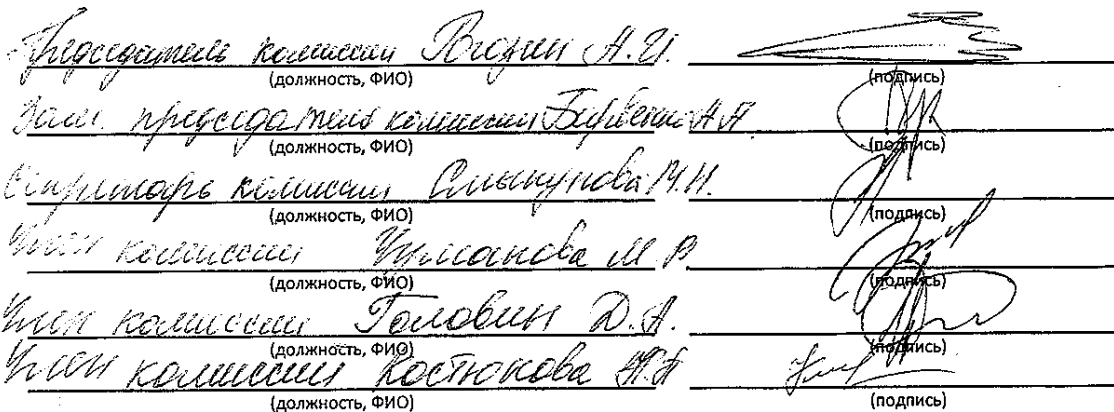 Председатель комиссии А.И.
(должность, ФИО) (подпись)
Зам. председателя комиссии А.П.
(должность, ФИО) (подпись)
Секретарь комиссии М.Н.
(должность, ФИО) (подпись)
Член комиссии Чумакова М.Р.
(должность, ФИО) (подпись)
Член комиссии Головин Д.А.
(должность, ФИО) (подпись)
Член комиссии Костюкова
(должность, ФИО) (подпись)